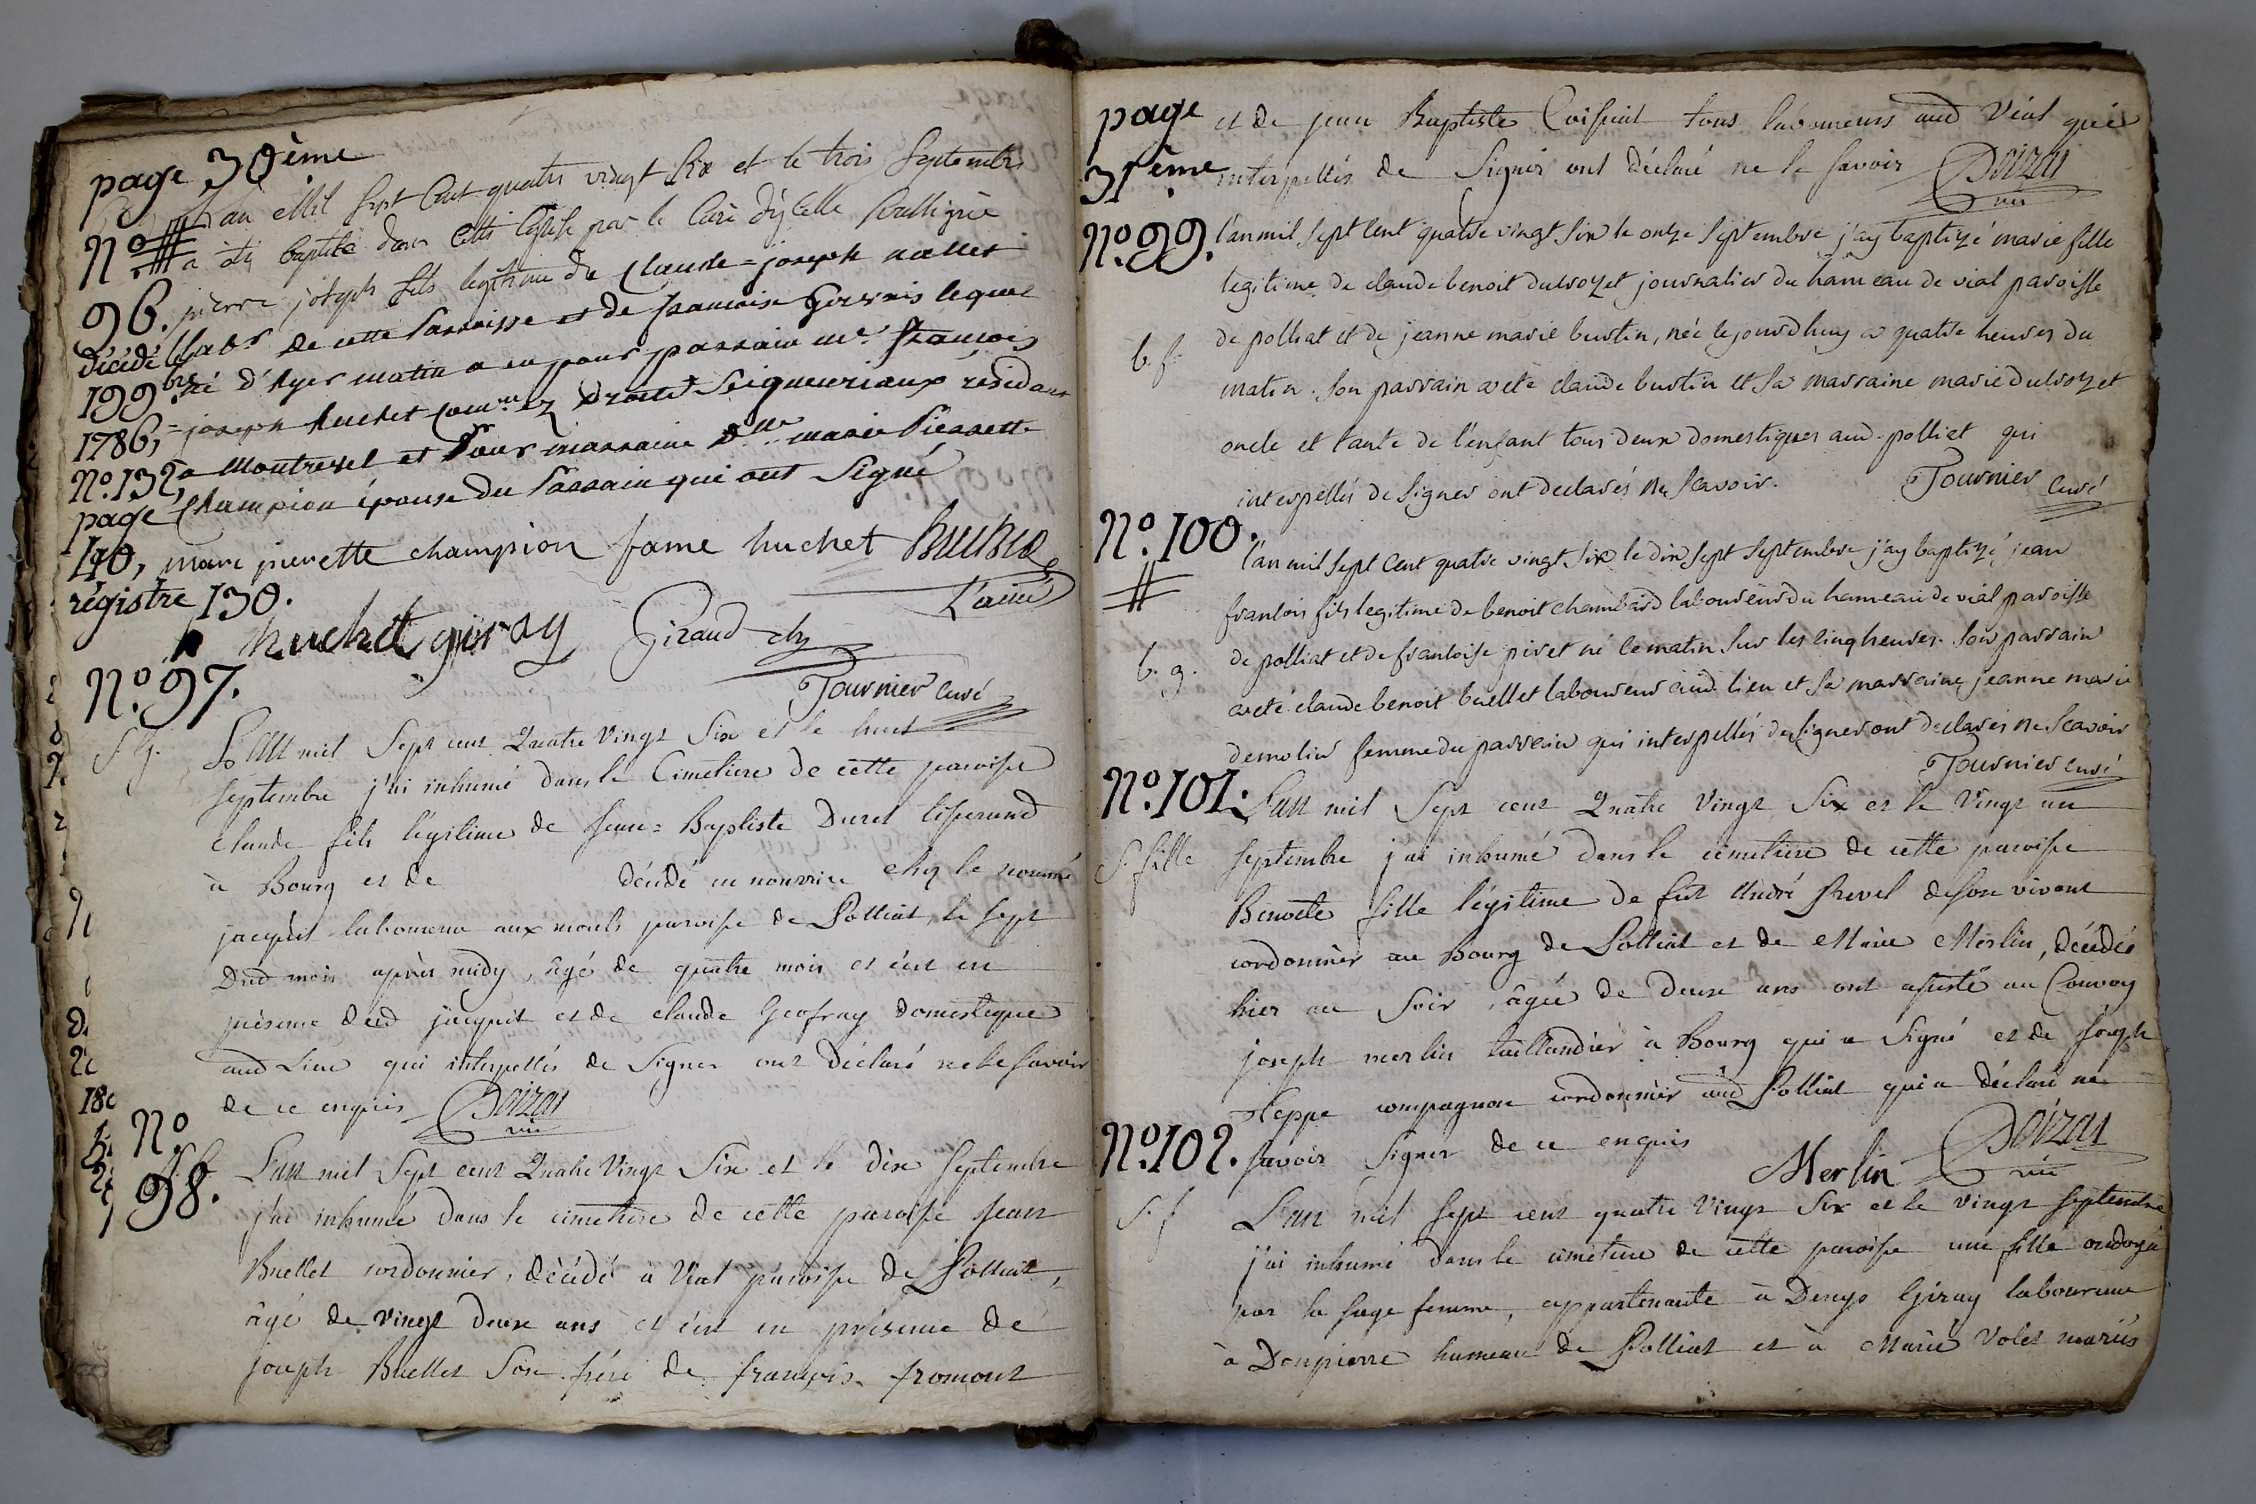 page 30ème
L'an Mil Sept Cent quatre vingt Six et le trois Septembre
No. a été baptisé dans cette Eglise par le Curé d'icelle soussigné
96. pierre joseph fils legitime de Claude=joseph
décédé labr. de cette Parroisse et de francoise Gervais lequel
199bre né d'hyer matin a eu pour parrain mr. francois
1786, =joseph huchet Comm. ez Droits Seigneuriaux residant
No. 132, a Montrevel et Pour marraine Dlle. marie Pierrette
page Champion épouse du Parrain qui ont Signé
140, marie pierette champion fame huchet
régistre 130. L'ainé
huchet giroy Giraud
Tournier Curé
No. 97.
s. g. L'an mil Sept cent Quatre Vingt Six et le huit
septembre j'ai inhumé dans le Cimetiere de cette paroisse
claude fils légitime de Jean=Baptiste Duret tisserand
à Bourg et de décédé en nourrice chez le nommé
jacquit laboureur aux mouls paroisse de Polliat le sept
Dud mois après midy, âgé de quatre mois et c'est en
présence dud jacquit et de claude Geofray domestique
aud Lieu qui interpellés de Signer ont déclaré ne le savoir
de ce enquis Doizai
vic
No.
98. L'an mil Sept cent Quatre Vingt Six et le dix septembre
j'ai inhumé dans le cimetiere de cette paroisse jean
Buellet cordonnier, décédé à Vial paroisse de Polliat,
âgé de vingt deux ans et c'est en présence de
joseph Buellet Son frère de françois fromont
page et de jean Baptiste tous laboureurs aud Vial qui
31ème interpellés de Signer ont déclaré ne le savoir Doizai
vic
No. 99. l'an mil sept cent quatre vingt six le onze septembre j'ay baptizé marie fille
legitime de claude benoit duvoyzet journalier du hameau de vial paroisse
b. f. de polliat et de jeanne marie bustin, née lejourdhuy a quatre heures du
matin. son parrain a eté claude bustin et sa marraine marie duvoyzet
oncle et tante de l'enfant tous deux domestiques aud. polliat qui
interpellés de signer ont declarés ne scavoir. Tournier Curé
No. 100. l'an mil sept cent quatre vingt six le dix sept septembre j'ay baptizé jean
francois fils legitime de benoit chambard laboureur du hameau de vial paroisse
b. g. de polliat et de francoise piret né le matin sur les cinq heures. son parrain
a eté claude benoit buellet laboureur aud. lieu et sa marraine jeanne marie
demolin femme du parrain qui interpellés de signer ont declarés ne scavoir
Tournier curé
No. 101. L'an mil Sept cent Quatre Vingt Six et le Vingt un
s. fille septembre j'ai inhumé dans le cimetiere de cette paroisse
Benoite fille légitime de fut André Revel de son vivant
cordonnier au Bourg de Polliat et de Marie Merlin, décédée
hier au Soir, âgée de deux ans ont assisté au Convoy
joseph merlin taillandier à Bourg qui a Signé et de joseph
Heppe compagnon cordonnier aud Polliat qui a déclaré ne
savoir Signer de ce enquis Merlin Doizai
vic
No. 102.
s. f. L'an mil Sept cent quatre Vingt Six et le vingt septembre
j'ai inhumé dans le cimetiere de cette paroisse une fille ondoyée
par la sage femme, appartenante à Denys Giray laboureur
à Donpierre hameau de Polliat et à Marie Volet mariés